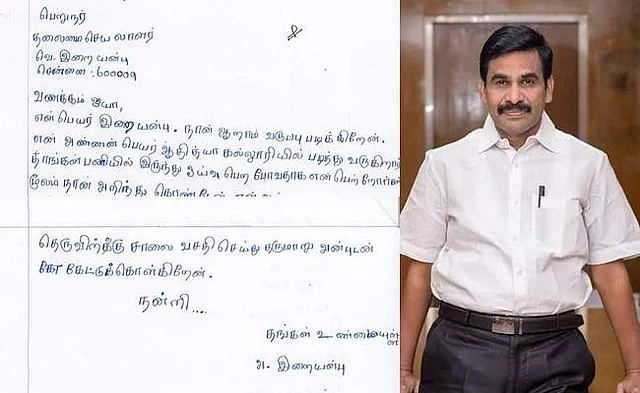 பெறுநர்
தலைமை செயலாளர்
வெ. இறையன்பு
சென்னை : 600009
வணக்கம் ஐயா,
என் பெயர் இறையன்பு. நான் ஆறாம் வகுப்பு படிக்கிறேன்.
என் அண்ணன் பெயர் ஆதித்யா கல்லூரியில் படித்து வருகிறார்
தாங்கள் பணியில் இருந்து ஓய்வு பெற போவதாக என் பெற்றோர்கள்
மூலம் நான் அறிந்து கொண்டேன்
தெருவிற்கு சாலை வசதி செய்து தருமாறு அன்புடன்
கேட்டுக்கொள்கிறேன்.
நன்றி....
தங்கள் உண்மையுள்ள
அ. இறையன்பு